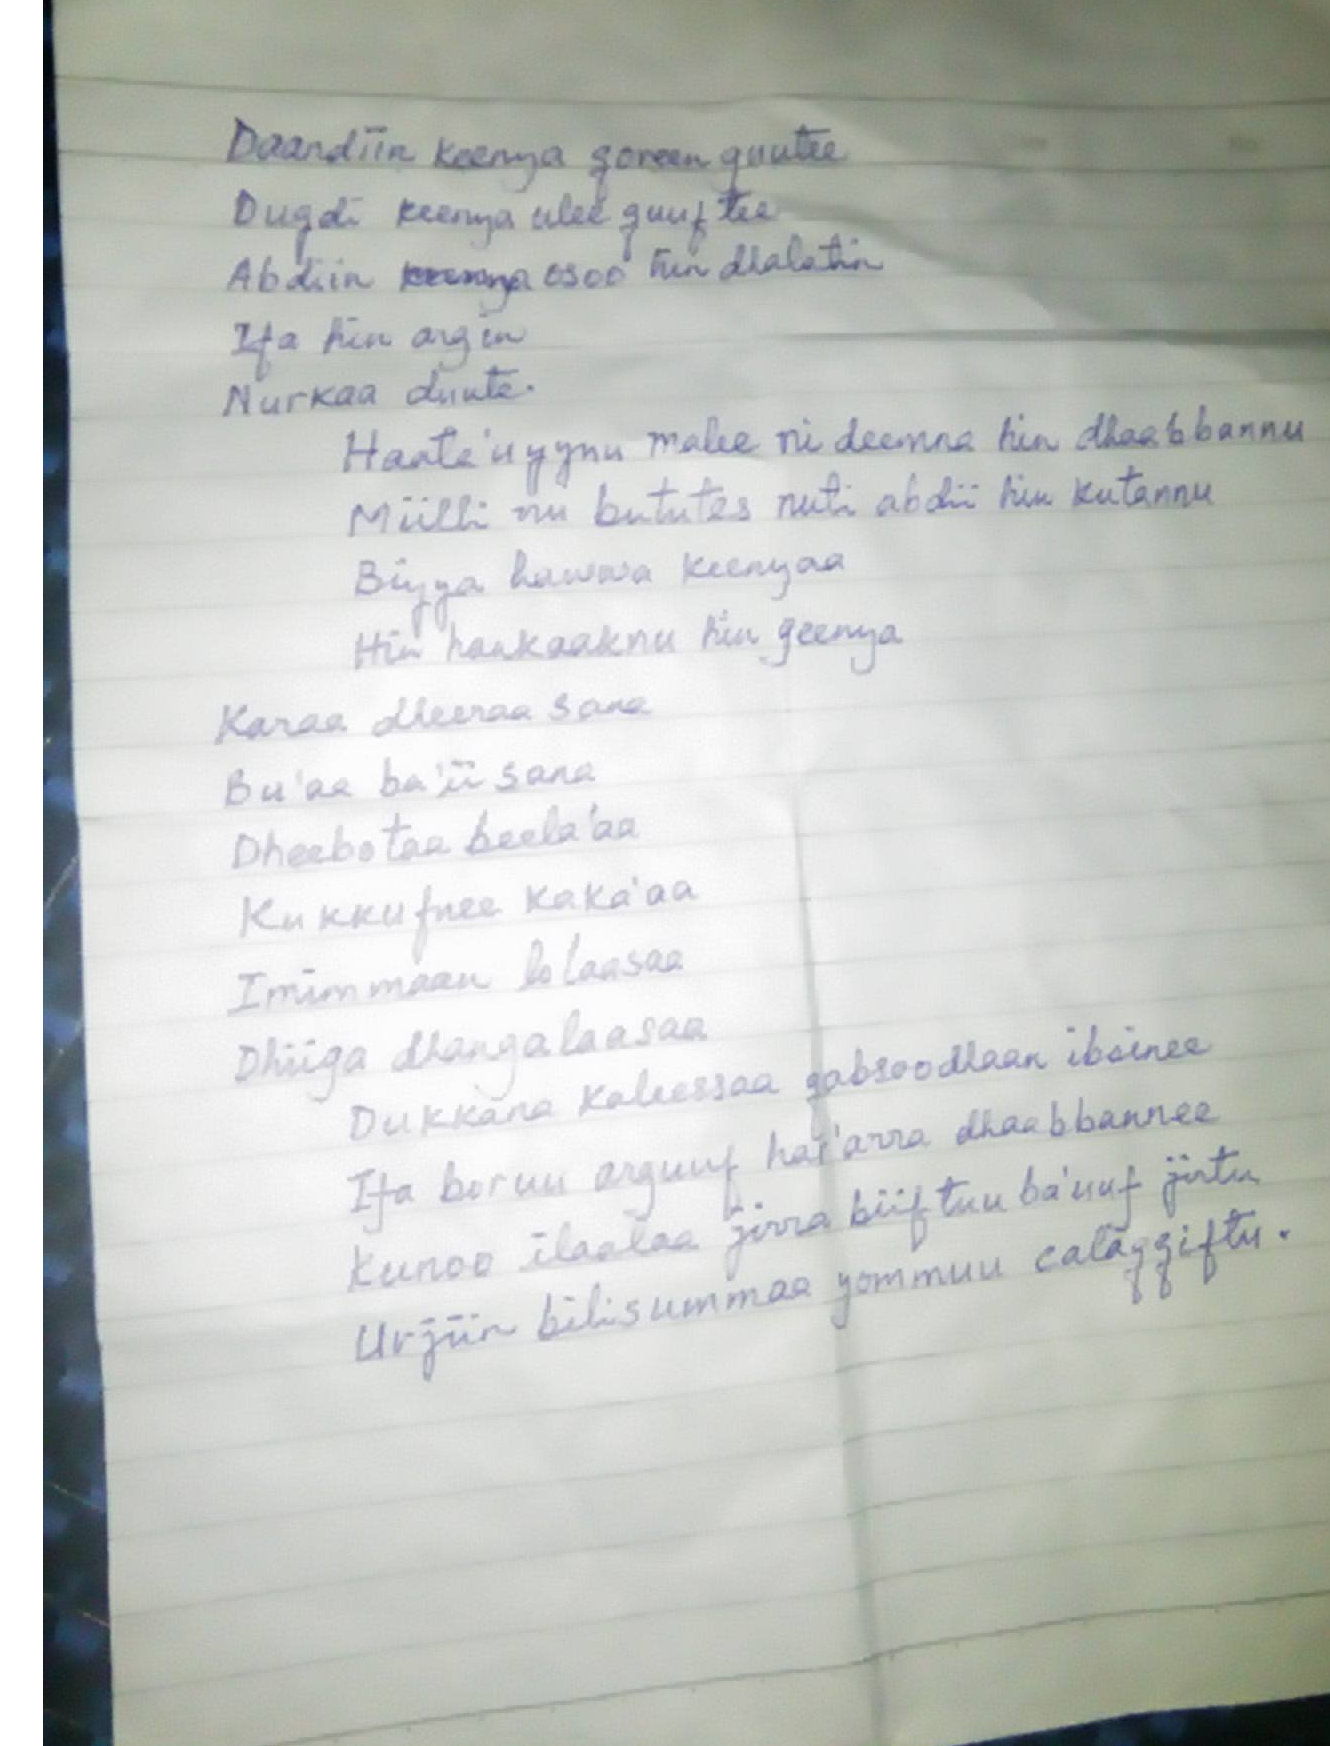 Daandiin keenya qoreen guutee
Dugdi keenya ulee guuftee
Abdiin keenya osoo hin dhalatin
Ifa hin argin
Nurkaa duute.
Haate'uyynu malee ni deemna hin dhaabbannu
Miilli nu bututes nuti abdii hin kutannu
Biyya hawwa keenyaa
Hin haakaaknu hin geenya
Karaa dheeraa sana
Bu'aa ba'ii sana
Dheebotaa beela'aa
Kukkufnee kaka'aa
Imimmaan lolaasaa
Dhiiga dhangalaasaa
Dukkana kaleessaa qabsoodhaan ibsinee
Ifa boruu arguuf har'arra dhaabbannee
Kunoo ilaalaa jirra biiftuu ba'uuf jirtu
Urjiin bilisummaa yommuu calaqqiftu.